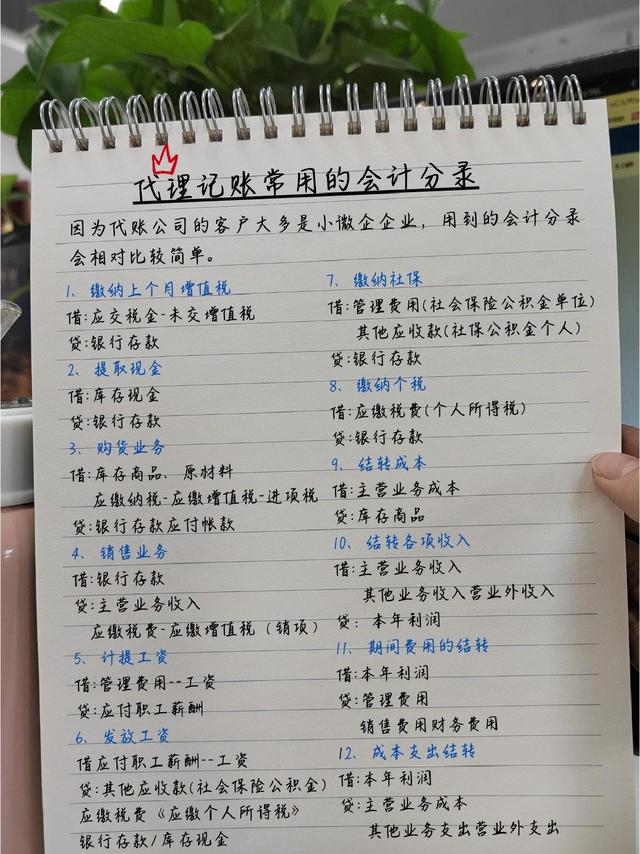 代理记账常用的会计分录
因为代账公司的客户大多是小微企企业，用到的会计分录
会相对比较简单。
1、缴纳上个月增值税
借:应交税金-未交增值税
贷:银行存款
2、提取现金
借:库存现金
贷:银行存款
3、购货业务
借:库存商品、原材料
应缴纳税-应缴增值税-进项税
贷:银行存款应付帐款
4、销售业务
借:银行存款
贷:主营业务收入
应缴税费-应缴增值税（销项）
5、计提工资
借:管理费用--工资
贷:应付职工薪酬
6、发放工资
借应付职工薪酬--工资
贷:其他应收款(社会保险公积金)
应缴税费《应缴个人所得税》
银行存款/库存现金
7、缴纳社保
借:管理费用(社会保险公积金单位)
其他应收款(社保公积金个人)
贷:银行存款
8、缴纳个税
借:应缴税费(个人所得税)
贷:银行存款
9、结转成本
借:主营业务成本
贷:库存商品
10、结转各项收入
借:主营业务收入
其他业务收入营业外收入
贷: 本年利润
11、期间费用的结转
借:本年利润
贷:管理费用
销售费用财务费用
12、成本支出结转
借:本年利润
贷:主营业务成本
其他业务支出营业外支出